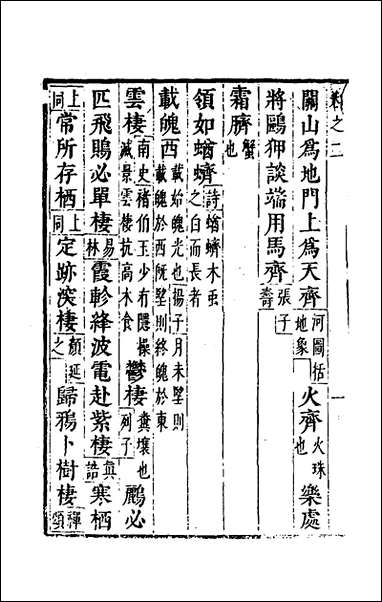 卷之二 一
關山爲地門上爲天齊河圖括地象火齊火珠也樂處
將鷗狎談端用馬齊張子壽
霜臍蟹也
領如蝤蠐詩蝤蠐木虫之白而長者
載魄西載始魄光也揚子月未朢則載魄於西旣朢則終魄於東
雲棲南史褚伯玉少有隱操滅景雲棲抗高木食鬱棲糞壤也列子鸝必
匹飛鶪必單棲易林霞軫絳波電赴紫棲眞誥寒栖
上同常所存栖上同定跡深棲顏延之歸鴉卜樹棲禪頌